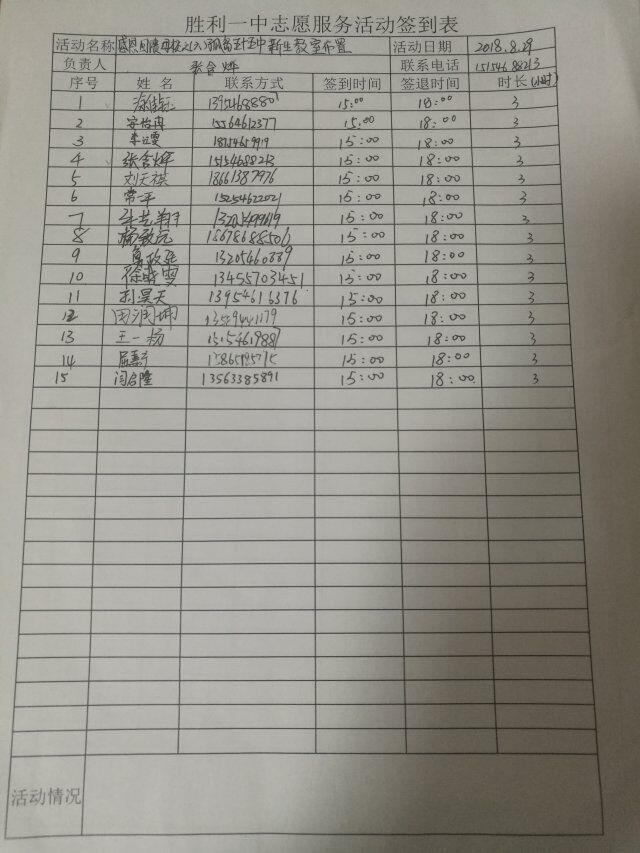 胜利一中志愿服务活动签到表
活动名称 新生教室布置 活动日期 2018.8.29
负责人 张含烨 联系电话 15154688213
序号 姓名 联系方式 签到时间 签退时间 时长(小时)
1 15:00 18:00 3
2 15564612377 15:00 18:00 3
3 15:00 18:00 3
4 张含烨 15154688213 15:00 18:00 3
5 刘天祺 18661387976 15:00 18:00 3
6 常一平 15254622021 15:00 18:00 3
7 15:00 18:00 3
8 杨敬元 18678688506 15:00 18:00 3
9 15:00 18:00 3
10 徐晴雪 13455703451 15:00 18:00 3
11 刘昊天 13954616376 15:00 18:00 3
12 田润坤 15:00 18:00 3
13 王一杨 15:00 18:00 3
14 15:00 18:00 3
15 闫启隆 13563385891 15:00 18:00 3
活动情况